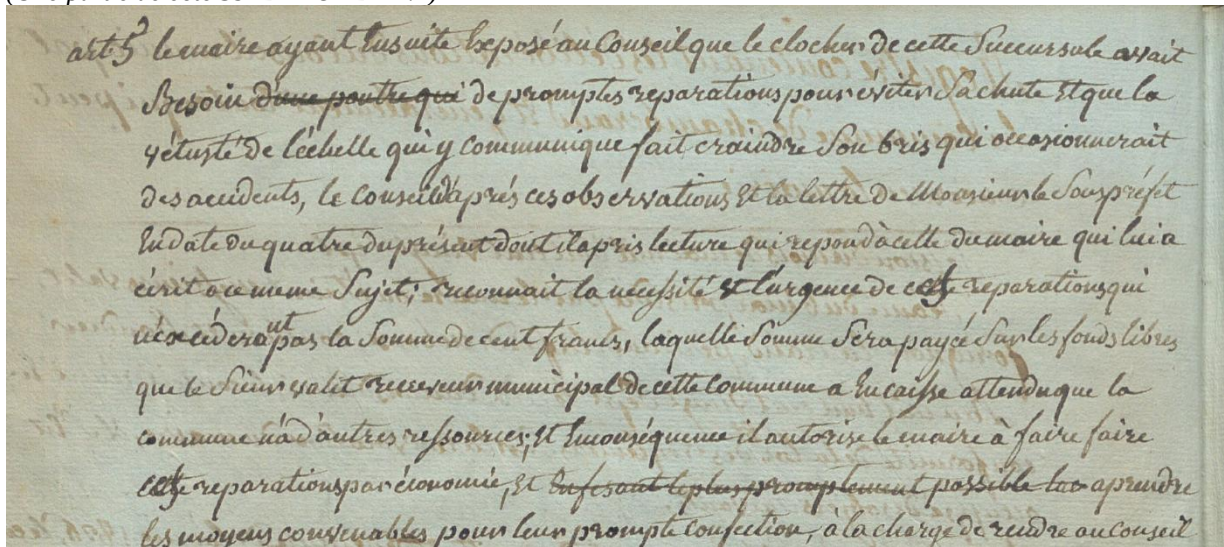 art 5e le maire ayant Ensuite Exposé au Conseil que le clocher de cette Succursale avait
Besoin d'une poutre qui de promptes reparations pour éviter Sa chute Et que la
vétusté de l'échelle qui y communique fait craindre Son bris qui occasionnerait
des accidents, le Conseil d'après ces observations Et la lettre de Monsieur le Sous préfet
En date du quatre du présent dont il a pris lecture qui repond à celle du maire qui lui a
écrit a ce meme Sujet; reconnait la nécessité Et l'urgence de ces reparations qui
n'excéderont pas la Somme de cent francs, laquelle Somme Sera payée Sur les fonds libres
que le Sieur valet receveur municipal de cette Commune a En caisse attendu que la
commune n'a d'autres ressources; Et En conséquence il autorise le maire à faire faire
ces reparations par économie, Et En fesant le plus promptement possible a prendre
les moyens convenables pour leur prompte Confection, à la charge de rendre au Conseil